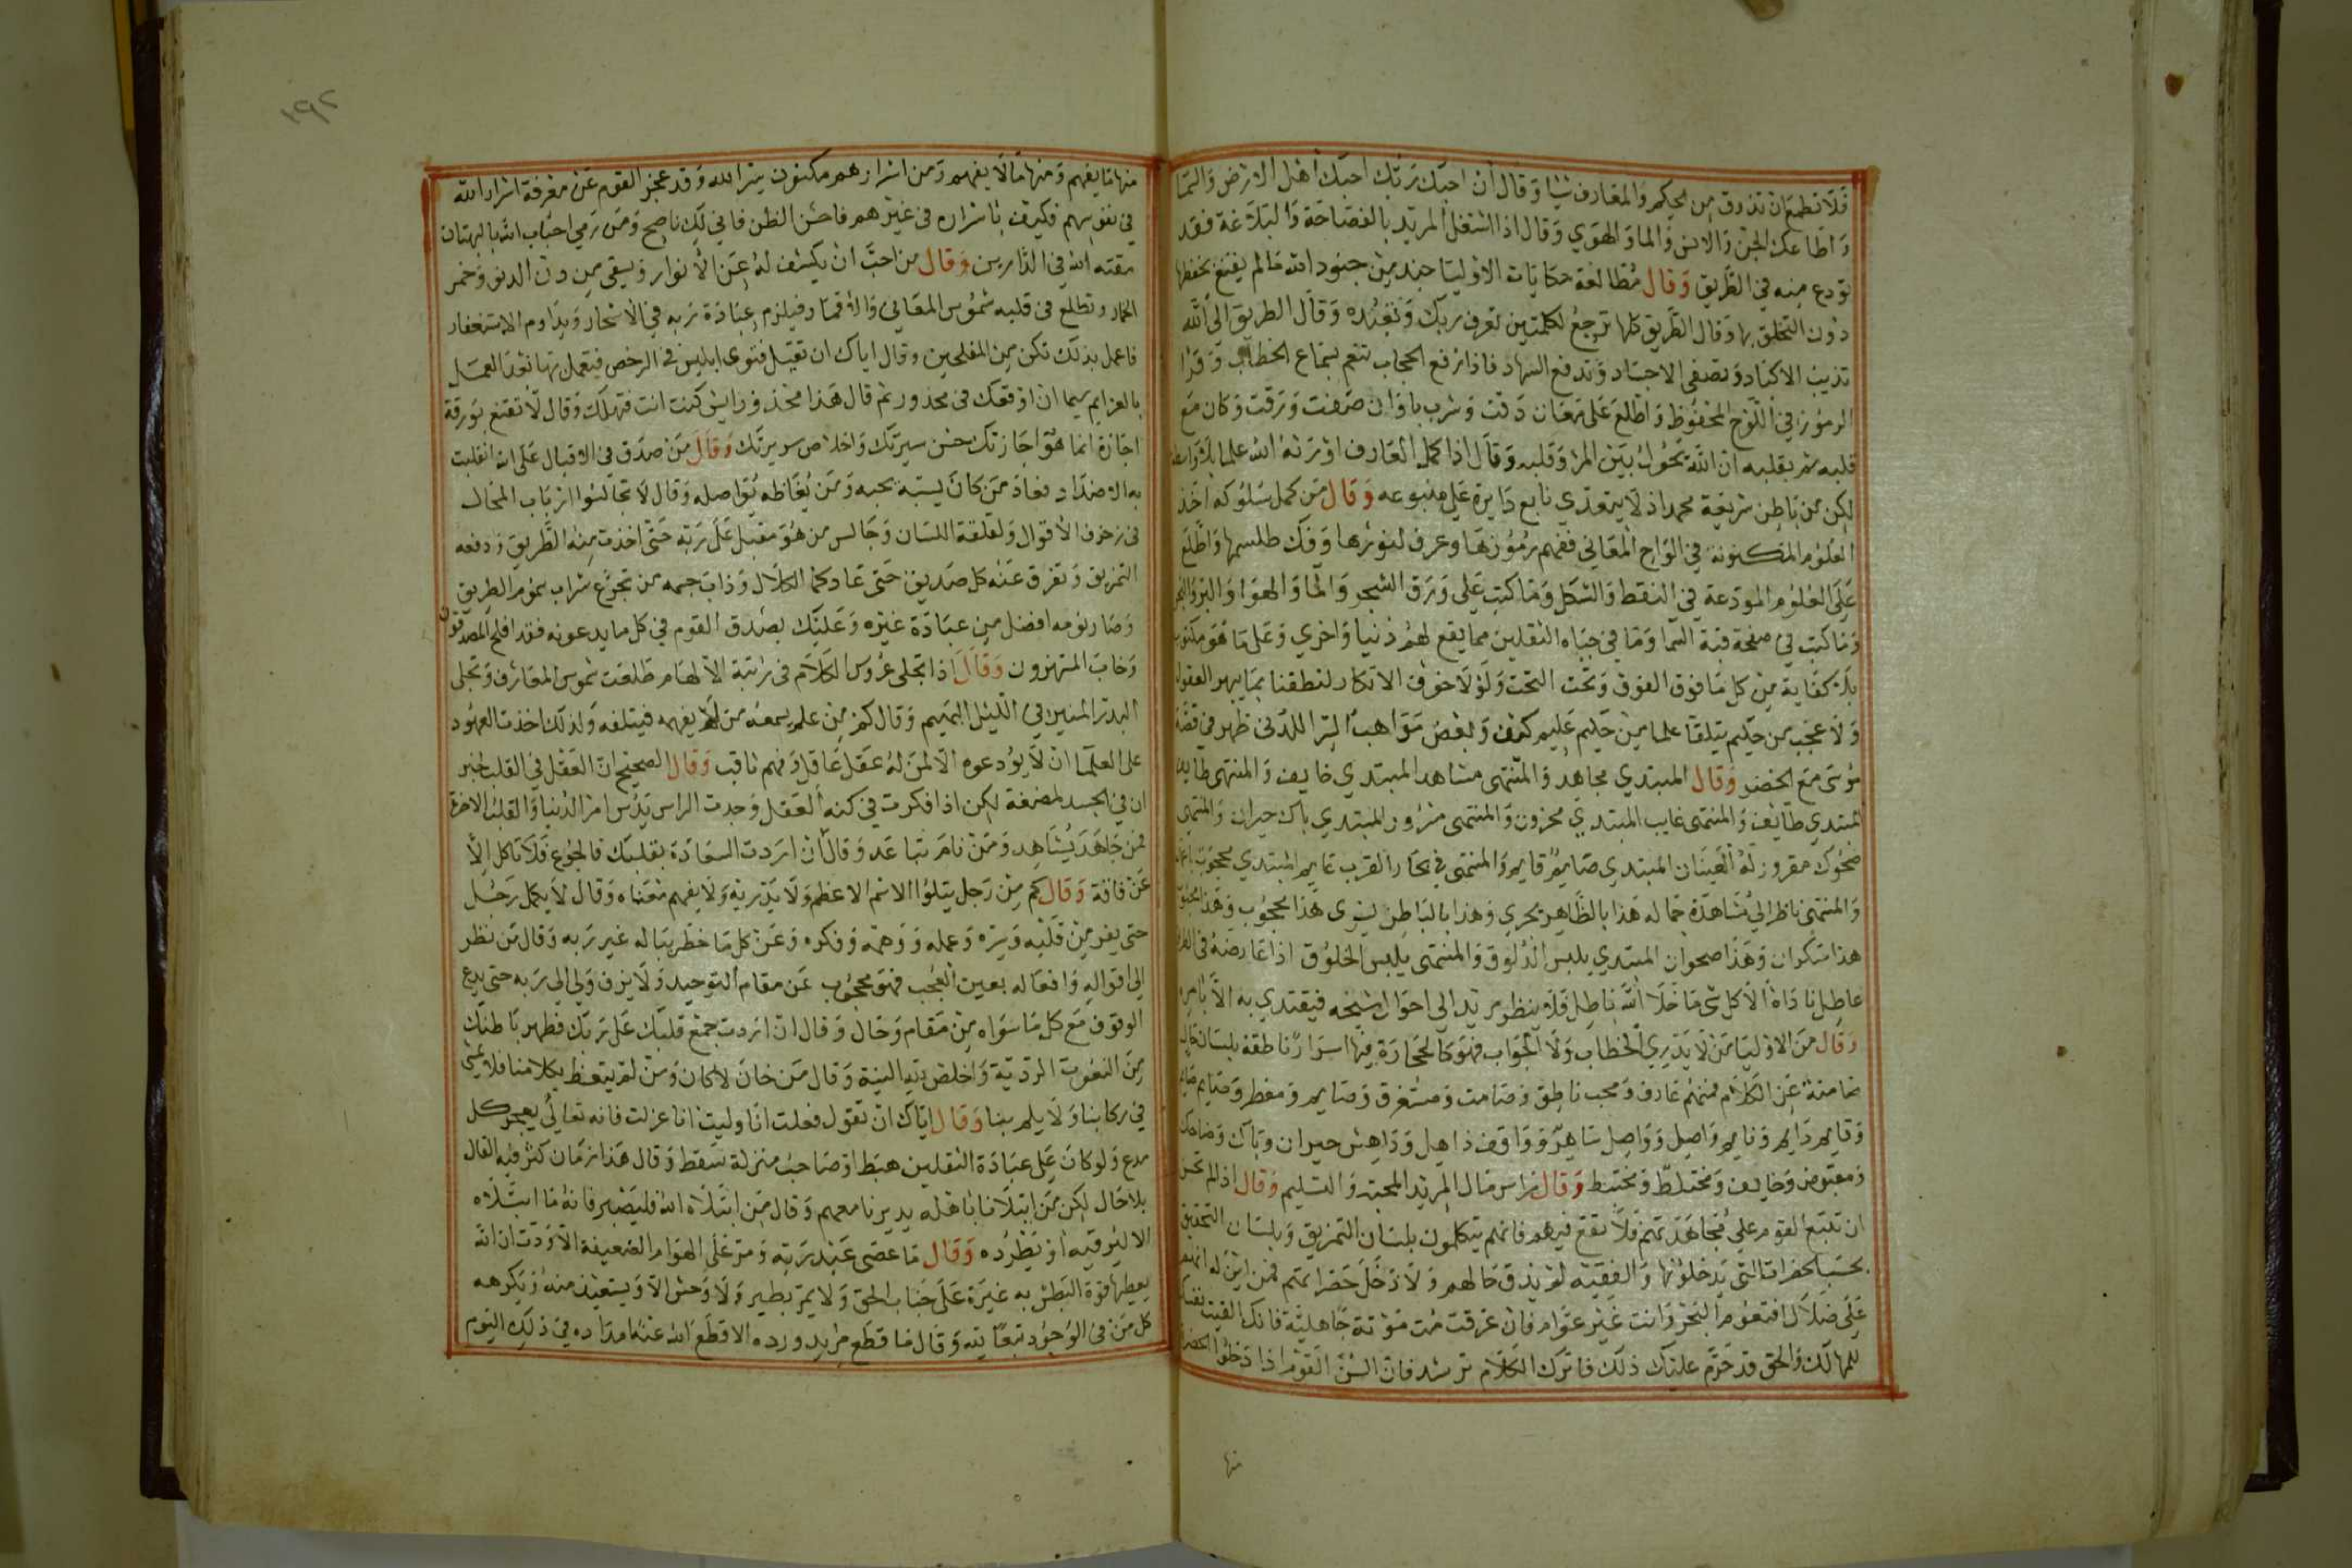 فلا تطمع ان تذوق من الحكم والمعارف شيا وقال ان احبك ربك احبك اهل الارض والسما
واطاعك الجن والانس والما والهوي وقال اذا اشتغل المريد بالفصاحة والبلاغة فقد
تودع منه في الطريق وقال مطالعة حكايات الاوليا جند من جنود الله مالم يقنع بحفظها
دون التخلق بها وقال الطريق كلها ترجع لكلمتين تعرف ربك وتعبده وقال الطريق الى الله
تذيب الاكباد وتضفى الاجساد وتدفع السهاد فاذا رفع الحجاب تنعم بسماع الخطاب وقرا
الرموز في اللوح المحفوظ واطلع على معان دقت وشرب باوان صفت ورقت وكان مع
قلبه ثم بقلبه ان الله يحول بين المر وقلبه وقال اذا كمل العارف اورثه الله علما بلا واسطة
لكن من باطن شريعة محمد اذ لا يتعدي تابع دايرة علي متبوعه وقال من كمل سلوكه اخذ
العلوم المكنونة في الواح المعاني ففهم رموزها وعرف كنوزها وفك طلسمها واطلع
على العلوم المودعة في النقط والشكل وما كتب علي ورق الشجر والما والهوا والبر والبحر
وما كتب في صفحة قبة السما وما في جباه الثقلين مما يقع لهم دنيا واخري وعلى ما هو مكتوب
بلا كتابة من كل ما فوق الفوق وتحت التحت ولولا خوف الانكار لنطقنا بما يبهر العقول
ولا عجب من حكيم يتلقا علما من حكيم عليم كيف وبعض مواهب السر اللدني ظهر في قصة
موسى مع الخضر وقال المبتدي مجاهد والمنتهى مشاهد المبتدي خايف والمنتهى طايف
المبتدي طايف والمنتهى غايب المبتدي محزون والمنتهى مسرور المبتدي باك حيران والمنتهى
ضحوك مقرور له العينان المبتدي صايم قايم والمنتهى في بحار القرب عايم المبتدي محجوب
والمنتهى ناظر الى مشاهدة جماله هذا بالظاهر يجري وهذا بالباطن يسرى هذا محجوب وهذا محبوب
هذا سكران وهذا صحوان المبتدي يلبس الدلوق والمنتهى يلبس الخلوق اذا عارضه في
عاطل ناداه الا كل شى ما خلا الله باطل فلا ينظر مريد الى احوال شيخه فيقتدي به الا بامره
وقال من الاوليا من لا يدري الخطاب ولا الجواب فهو كالحجارة فيها اسرار ناطقة بلسان حال
صامتة عن الكلام فمنهم عارف ومحب ناطق وصامت ومستغرق وصايم ومفطر وصايم
وقايم دايم ونايم واصل وواصل ساهر وواقف ذاهل وداهش حيران وباك وضاحك
ومقبوض وخايف ومختلط ومختبط وقال راس مال المريد المحبة والتسليم وقال اذ لم تحسن
ان تتبع القوم علي مجاهدتهم فلا تقع فيهم فانهم يتكلمون بلسان التمزيق وبلسان التحقيق
بحسب الحضرات التي يدخلونها والفقيه لم يذق حالهم ولا دخل حضراتهم فمن اين له انهم
على ضلال افتعوم البحر وانت غير عوام فان غرقت مت موتة جاهلية فانك القيت نفسك
للمهالك والحق قد حرم عليك ذلك فاترك الكلام ترشد فان السن القوم اذا دخلوا الحضرة
منها
١٩٢
منها ما يفهم ومنها مالا يفهم ومن اسرارهم مكنون سر الله وقد عجز القوم عن معرفة اسرار الله
في نفوسهم فكيف باسراره في غيرهم فاحسن الظن فاني لك ناصح ومن رمى احباب الله بالبهتان
مقته الله في الدارين وقال من احب ان يكشف له عن الانوار ويسقى من دن الدنو وخمر
الخمار وتطلع في قلبه شموس المعاني والاقمار فيلزم عبادة ربه في الاسحار ويداوم الاستغفار
فاعمل بذلك تكن من المفلحين وقال اياك ان تقبل فتوى ابليس في الرخص فتعمل بها بعد العمل
بالعزايم سيما ان اوقعك في محذور ثم قال هذا مخذور ايش كنت انت فتهلك وقال لا تقنع بورقة
اجازة انما هو اجازتك حسن سيرتك واخلاص سريرتك وقال من صدق في الاقبال على الله انقلبت
به الاضداد فعاد من كان يسبه يحبه ومن يقاطه يواصله وقال لا تجالسوا ارباب المحال
في زخرف الاقوال ولقلقة اللسان وجالس من هو مقبل على ربه حتى اخذت منه الطريق ودفعه
التمزيق وتفرق عنه كل صديق حتى عاد كما الخلال وذاب جسمه من تجرع شراب سموم الطريق
وصار نومه افضل من عبادة غيره وعليك بصدق القوم في كل ما يدعونه فقد افلح المصدقون
وخاب المستهزون وقال اذا تجلى عروس الكلام في رتبة الالهام طلعت شموس المعارف وتجلى
البدر المنير في الليل البهيم وقال كم من علم يسمعه من لا يفهمه فيتلفه ولذلك اخذت العهود
على العلما ان لا يودعوه الا لمن له عقل عاقل وفهم ثاقب وقال الصحيح ان العقل في القلب لخبر
ان في الجسد لمضغة لكن اذا فكرت في كنه العقل وجدت الراس يدبر امر الدنيا والقلب الاخرة
فمن جاهد يشاهد ومن نام تباعد وقال ان اردت السعادة بقلبك فالجوع فلا تاكل الا
عن فاقة وقال كم من رجل يتلوا الاسم الاعظم ولا يدريه ولا يفهم معناه وقال لا يكمل رجل
حتى يفر من قلبه وسره وعمله ووهمه وفكره وعن كل ما خطر بباله غير ربه وقال من نظر
الى اقواله وافعاله بعين العجب فهو محجوب عن مقام التوحيد ولا يزف ولي الى ربه حتى يدع
الوقوف مع كل ما سواه من مقام وحال وقال ان اردت جمع قلبك على ربك فطهر باطنك
من النعوت الردية واخلص لله النية وقال من خان لا كان ومن لم يتعظ بكلامنا فلا يمشي
في ركابنا ولا يلم بنا وقال اياك ان تقول فعلت انا وليت انا عزلت فانه تعالى يعجز كل
مدع ولو كان على عبادة الثقلين هبط او صاحب منزلة سقط وقال هذا زمان كثر فيه القال
بلا حال لكن من ابتلانا باهله يدبرنا معهم وقال من ابتلاه الله فليصبر فانه ما ابتلاه
الا ليرقيه او يطرده وقال ما عصى عبد ربه ومر على الهوام الضعيفة الا ودت ان الله
يعطيها قوة البطش به غيرة على جناب الحق ولا يمر بطير ولا وحش الا ويستعيذ منه ويكرهه
كل من في الوجود تبعا لله وقال ما قطع مريد ورده الا قطع الله عنه امداده في ذلك اليوم